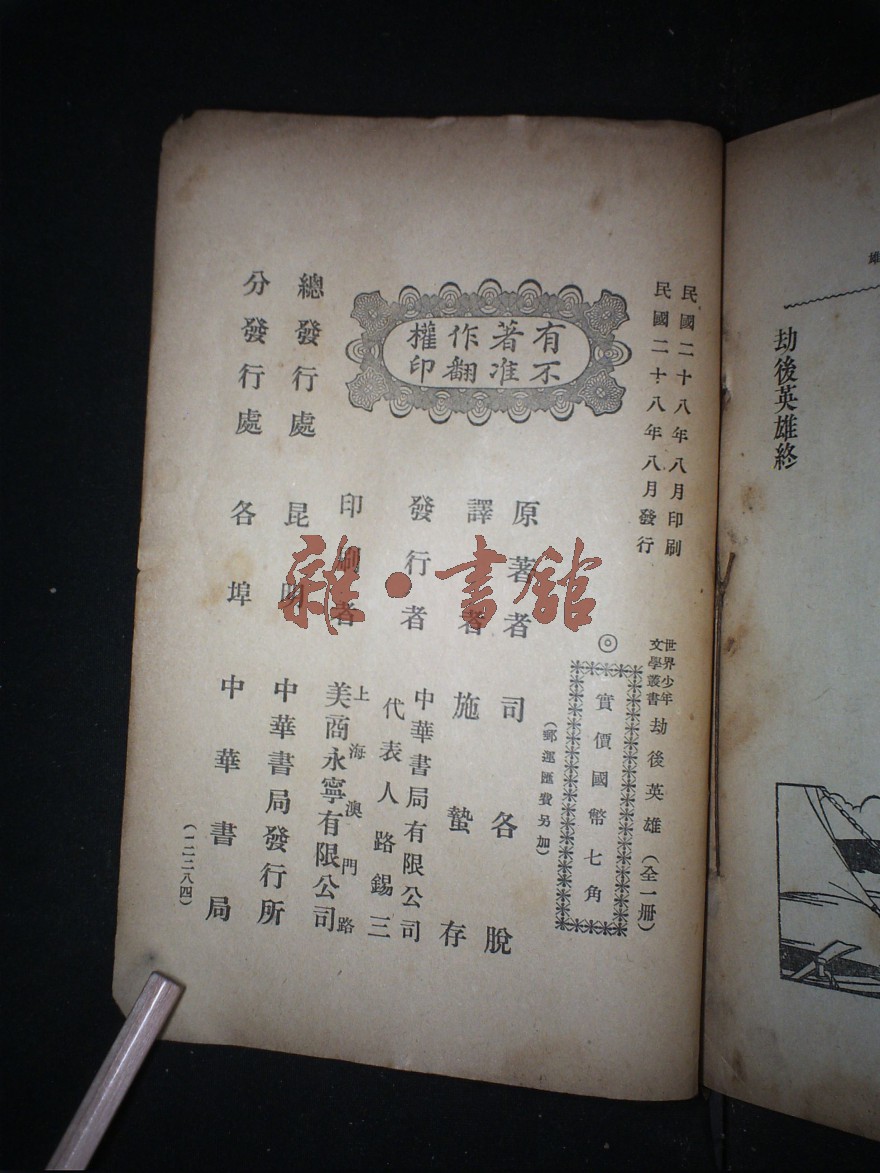 雄
劫後英雄終
民國二十八年八月印刷
民國二十八年八月發行
世界少年
文學叢書
劫後英雄（全一冊）
◎
實價國幣七角
（郵運匯費另加）
有不
著准
作翻
權印
原著者 司各脫
譯者 施蟄存
發行者 中華書局有限公司
代表人路錫三
印刷者 上海澳門路
美商永寧有限公司
總發行處 昆明 中華書局發行所
分發行處 各埠 中華書局
（一二二八四）
雜·書館